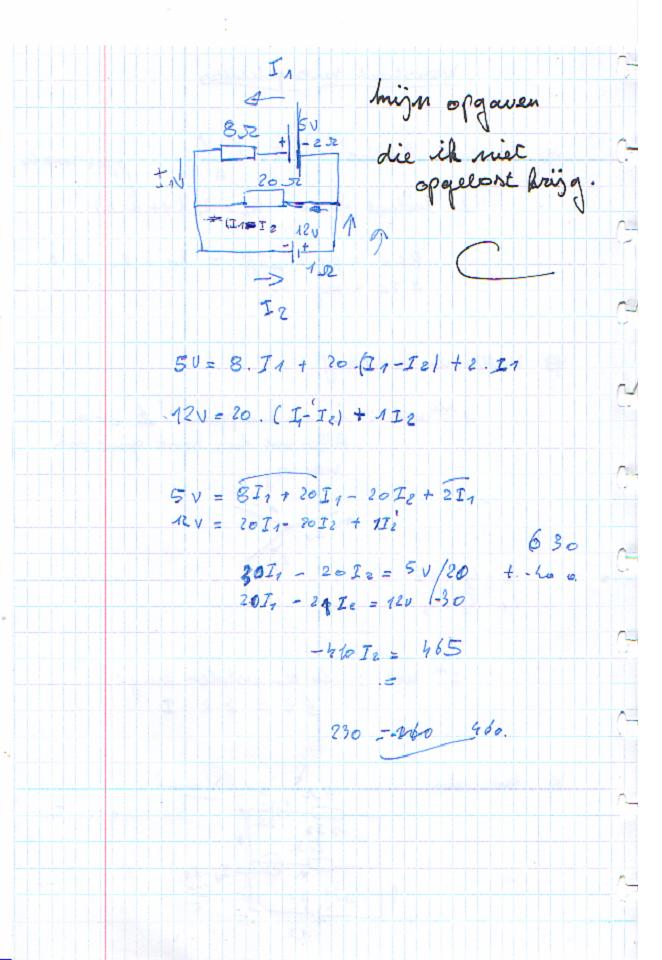 I1
5V
8Ω + - 2Ω
I1
20Ω
(I1-I2
12V
- +
1Ω
I2
mijn opgaven
die ik niet
opgelost krijg.
5V = 8. I1 + 20.(I1-I2) + 2. I1
12V = 20. (I1-I2) + 1I2
5V = 8I1 + 20I1 - 20I2 + 2I1
12V = 20I1 - 20I2 + 1I2
630
30I1 - 20I2 = 5V /20
20I1 - 21I2 = 12V /-30
-410I2 = 465
=
230 = 460.